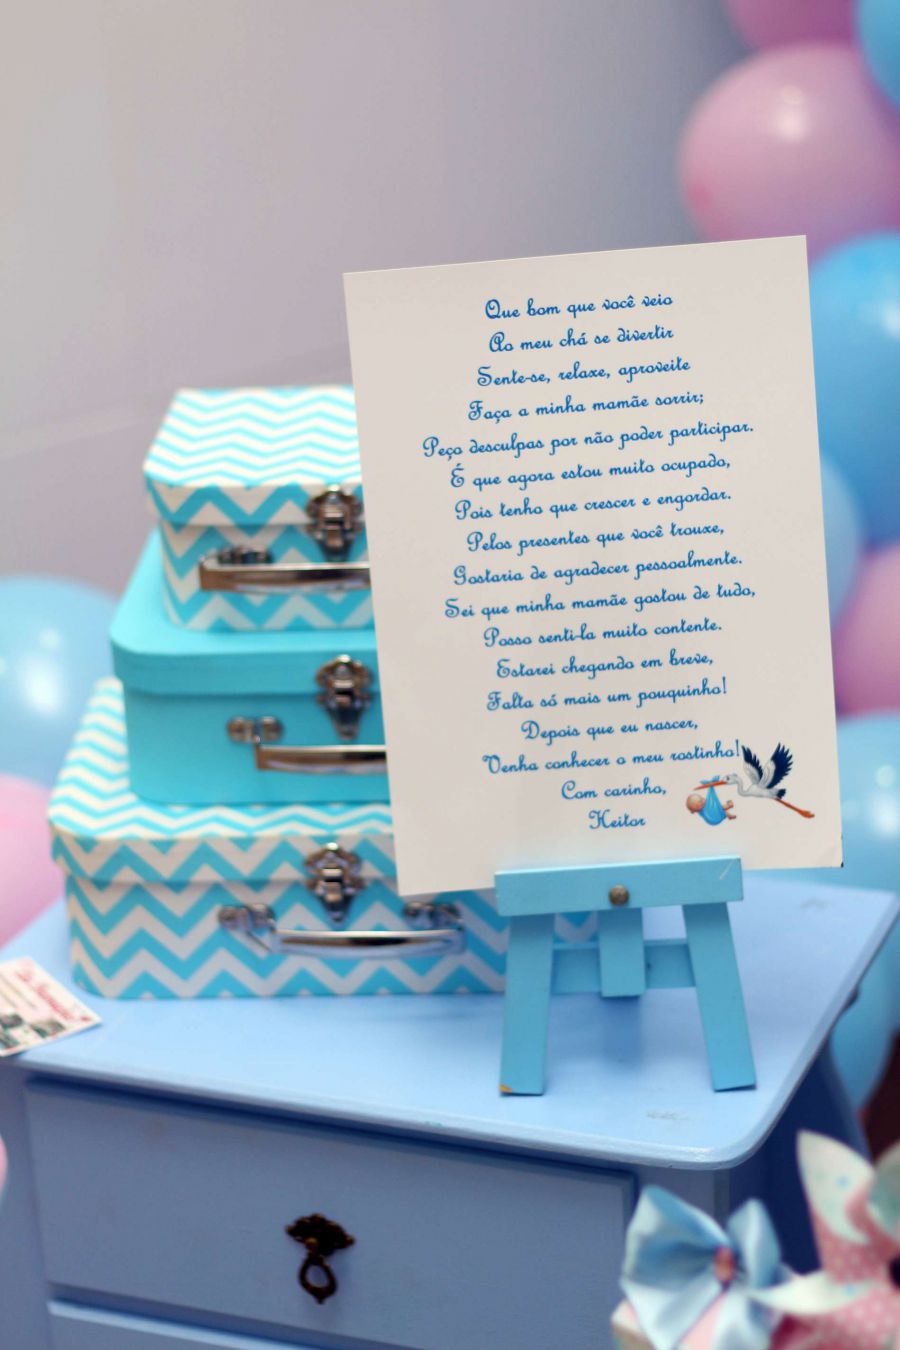 Que bom que você veio
Ao meu chá se divertir
Sente-se, relaxe, aproveite
Faça a minha mamãe sorrir;
Peço desculpas por não poder participar.
É que agora estou muito ocupado,
Pois tenho que crescer e engordar.
Pelos presentes que você trouxe,
Gostaria de agradecer pessoalmente.
Sei que minha mamãe gostou de tudo,
Posso senti-la muito contente.
Estarei chegando em breve,
Falta só mais um pouquinho!
Depois que eu nascer,
Venha conhecer o meu rostinho!
Com carinho,
Heitor